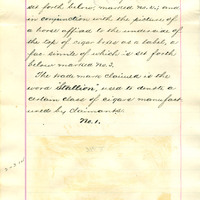 set forth below, marked No. 2; and
in conjunction with the picture of
a horse affixed to the underside of
the top of cigar boxes as a label, a
fac simile of which is set forth
below marked No. 3.
The trade mark claimed is the
word "Stallion", used to denote a
certain class of cigars manufact
ured by claimants.
No. 1.